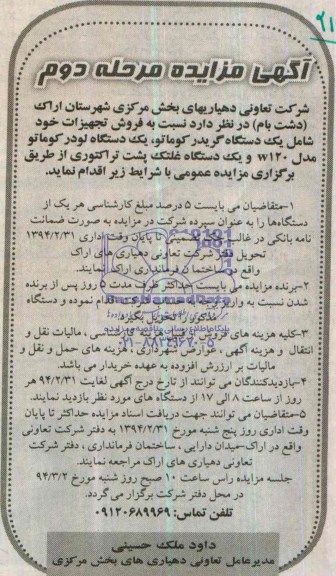 ۶۱
آگهی مزایده مرحله دوم
شرکت تعاونی دهیاریهای بخش مرکزی شهرستان اراک
(دشت بام) در نظر دارد نسبت به فروش تجهیزات خود
شامل یک دستگاه گریدر کوماتو، یک دستگاه لودر کوماتو
مدل w۱۲۰ و یک دستگاه غلتک پشت تراکتوری از طریق
برگزاری مزایده عمومی با شرایط زیر اقدام نماید.
۱-متقاضیان می بایست ۵ درصد مبلغ کارشناسی هر یک از
دستگاه‌ها را به عنوان سپرده شرکت در مزایده به صورت ضمانت
نامه بانکی در غالب تضمینی تا پایان وقت اداری ۱۳۹۴/۲/۳۱
تحویل دفتر شرکت تعاونی دهیاری های اراک
واقع در ساختمان فرمانداری اراک نمایند.
۲-برنده مزایده می بایست حداکثر ظرف مدت ۵ روز پس از برنده
شدن نسبت به واریز اقدام نموده و دستگاه
مذکور را تحویل بگیرد.
۳-کلیه هزینه های فروش هزینه کارشناسی ، مالیات نقل و
انتقال و هزینه آگهی ، عوارض شهرداری ، هزینه های حمل و نقل و
مالیات بر ارزش افزوده به عهده خریدار می باشد.
۴-بازدیدکنندگان می توانند از تاریخ درج آگهی لغایت ۹۴/۲/۳۱ هر
روز از ساعت ۸ الی ۱۷ از دستگاه های مورد نظر بازدید نمایند.
۵-متقاضیان می توانند جهت دریافت اسناد مزایده حداکثر تا پایان
وقت اداری روز پنج شنبه مورخ ۱۳۹۴/۲/۳۱ به دفتر شرکت تعاونی
واقع در اراک-میدان دارایی ، ساختمان فرمانداری ، دفتر شرکت
تعاونی دهیاری های اراک مراجعه نمایند.
جلسه مزایده راس ساعت ۱۰ صبح روز شنبه مورخ ۹۴/۳/۲
در محل دفتر شرکت برگزار می گردد.
تلفن تماس: ۰۹۱۲۰۶۸۹۹۶۹
داود ملک حسینی
مدیرعامل تعاونی دهیاری های بخش مرکزی